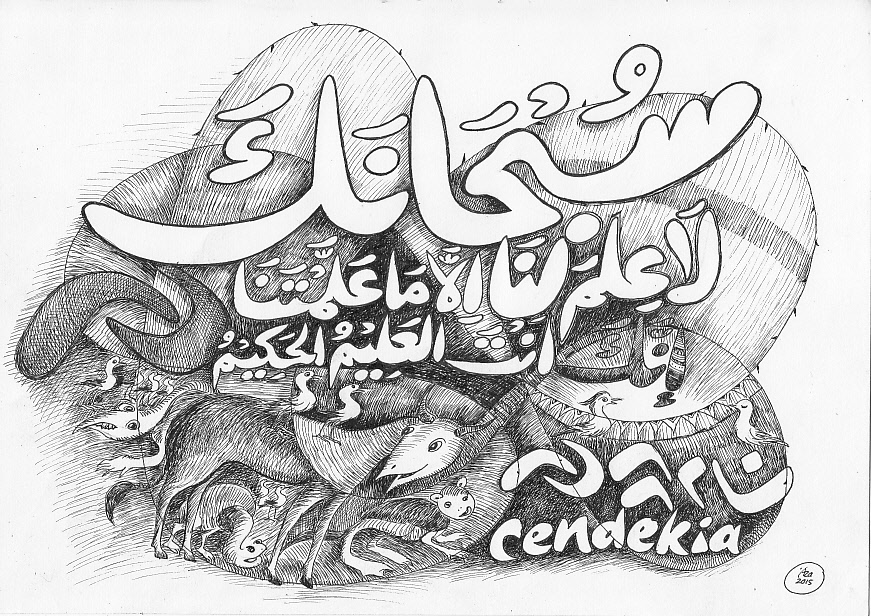 سُبْحَانَكَ
لَا عِلْمَ لَنَا اِلَّا مَا عَلَّمْتَنَا
انك اَنْتَ العَلِيْمُ الحَكِيْمُ
cendekia
2015